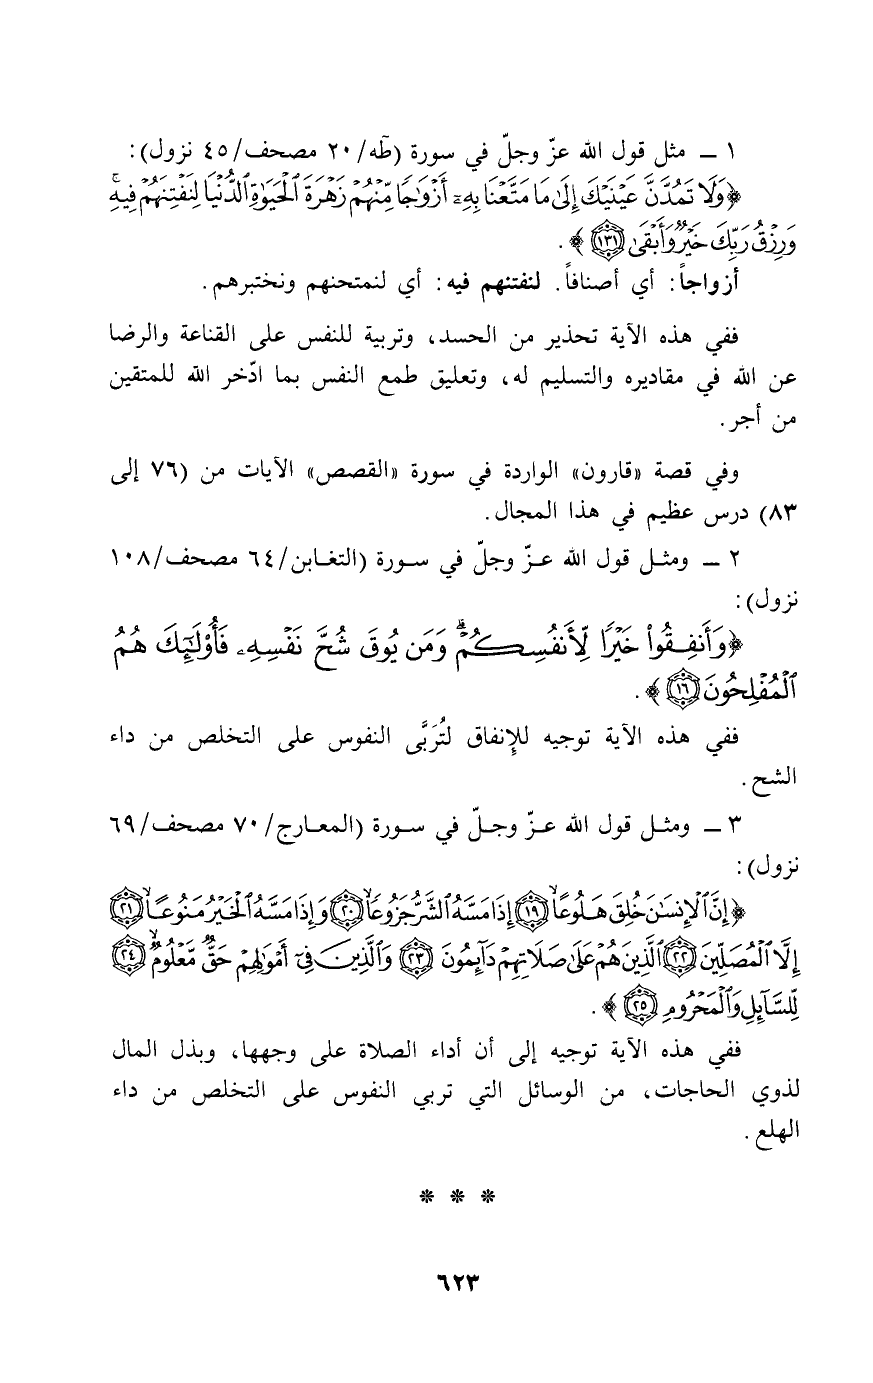 ١ ـ مثل قول الله عزّ وجلّ في سورة (طه/ ٢٠ مصحف/ ٤٥ نزول):
﴿وَلَا تَمُدَّنَّ عَيْنَيْكَ إِلَىٰ مَا مَتَّعْنَا بِهِۦٓ أَزْوَٰجًا مِّنْهُمْ زَهْرَةَ ٱلْحَيَوٰةِ ٱلدُّنْيَا لِنَفْتِنَهُمْ فِيهِ ۚ
وَرِزْقُ رَبِّكَ خَيْرٌ وَأَبْقَىٰ ١٣١﴾.
أزواجاً: أي أصنافاً. لنفتنهم فيه: أي لنمتحنهم ونختبرهم.
ففي هذه الآية تحذير من الحسد، وتربية للنفس على القناعة والرضا
عن الله في مقاديره والتسليم له، وتعليق طمع النفس بما ادّخر الله للمتقين
من أجر.
وفي قصة «قارون» الواردة في سورة «القصص» الآيات من (٧٦ إلى
٨٣) درس عظيم في هذا المجال.
٢ ـ ومثـل قول الله عـزّ وجلّ في سـورة (التغـابن/ ٦٤ مصحف/ ١٠٨
نزول):
﴿وَأَنفِـقُوا۟ خَيْرًا لِّأَنفُسِكُمْ ۗ وَمَن يُوقَ شُحَّ نَفْسِهِۦ فَأُو۟لَـٰٓئِكَ هُمُ
ٱلْمُفْلِحُونَ ١٦﴾.
ففي هذه الآية توجيه للإنفاق لتُرَبَّى النفوس على التخلص من داء
الشح.
٣ ـ ومثـل قول الله عـزّ وجـلّ في سـورة (المعـارج/ ٧٠ مصحف/ ٦٩
نزول):
﴿إِنَّ ٱلْإِنسَـٰنَ خُلِقَ هَلُوعًا ١٩ إِذَا مَسَّهُ ٱلشَّرُّ جَزُوعًا ٢٠ وَإِذَا مَسَّهُ ٱلْخَيْرُ مَنُوعًا ٢١
إِلَّا ٱلْمُصَلِّينَ ٢٢ ٱلَّذِينَ هُمْ عَلَىٰ صَلَاتِهِمْ دَآئِمُونَ ٢٣ وَٱلَّذِينَ فِىٓ أَمْوَٰلِهِمْ حَقٌّ مَّعْلُومٌ ٢٤
لِّلسَّآئِلِ وَٱلْمَحْرُومِ ٢٥﴾.
ففي هذه الآية توجيه إلى أن أداء الصلاة على وجهها، وبذل المال
لذوي الحاجات، من الوسائل التي تربي النفوس على التخلص من داء
الهلع.
* * *
٦٢٣